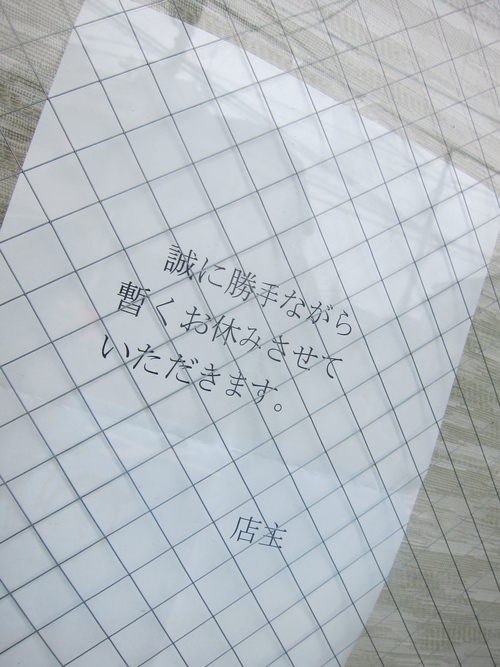 誠に勝手ながら
暫くお休みさせて
いただきます。
店主